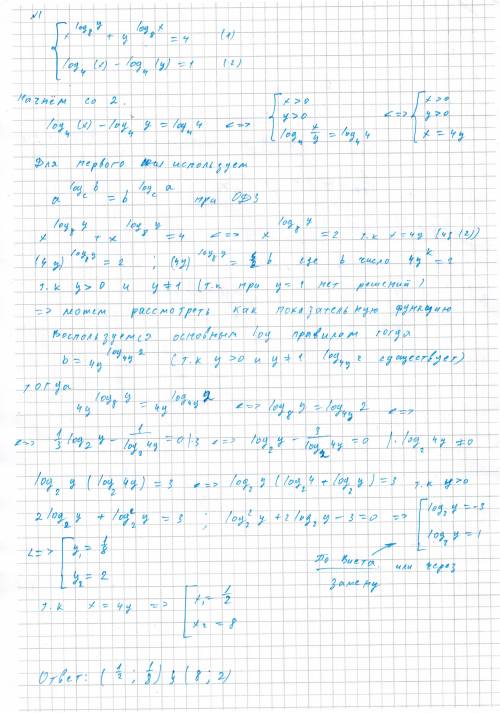 №1
x^{log_8 y} + y^{log_8 x} = 4 (1)
log_4 (x) - log_4 (y) = 1 (2)
Начнём со 2.
log_4 (x) - log_4 y = log_4 4 <=> { x > 0 <=> { x > 0
y > 0 y > 0
log_4 x/y = log_4 4 x = 4y
Для первого используем
a^{log_c b} = b^{log_c a} при ОДЗ
x^{log_8 y} + x^{log_8 y} = 4 <=> x^{log_8 y} = 2 т.к x = 4y (из (2))
(4y)^{log_8 y} = 2 ; (4y)^{log_8 y} = b где b число 4y^k = 2
т.к y > 0 и y ≠ 1 (т.к при y = 1 нет решений)
=> можем рассмотреть как показательную функцию
Воспользуемся основным log правилом тогда
b = 4y^{log_{4y} 2} (т.к y > 0 и y ≠ 1 log_{4y} 2 существует)
тогда
4y^{log_8 y} = 4y^{log_{4y} 2} <=> log_8 y = log_{4y} 2 <=>
<=> 1/3 log_2 y - 1/log_2 4y = 0 |·3 <=> log_2 y - 3/log_2 4y = 0 |· log_2 4y ≠ 0
log_2 y (log_2 4y) = 3 <=> log_2 y (log_2 4 + log_2 y) = 3 т.к y > 0
2 log_2 y + log_2^2 y = 3 ; log_2^2 y + 2 log_2 y - 3 = 0 => [ log_2 y = -3
log_2 y = 1
<=> [ y_1 = 1/8
y_2 = 2
По Виета или через
замену
т.к x = 4y => [ x_1 = 1/2
x_2 = 8
Ответ: (1/2 ; 1/8) ; (8 ; 2)